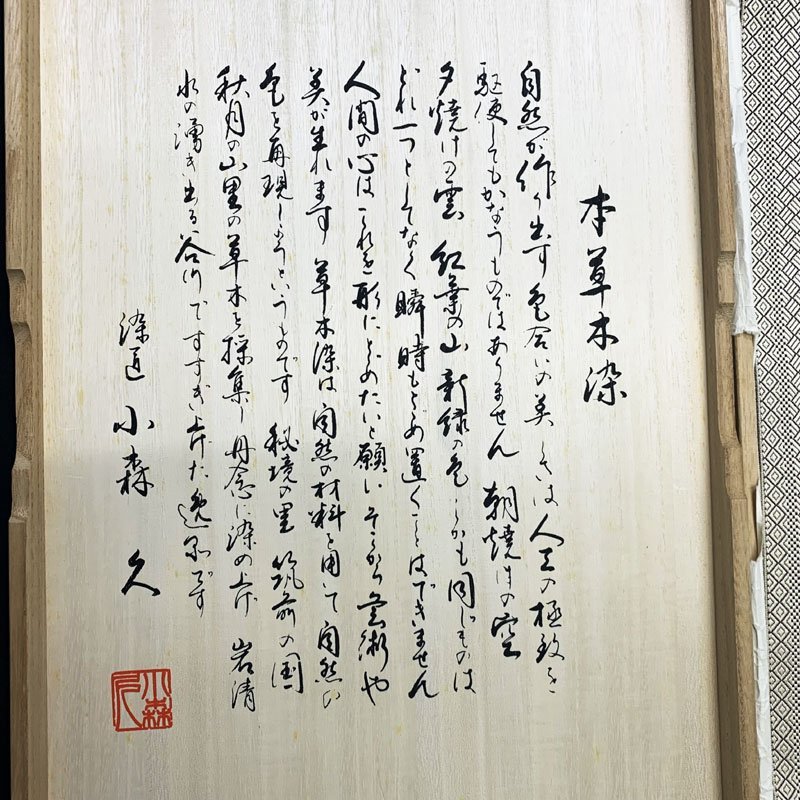 本草木染
自然が作り出す色合いの美しさは人工の極致を
駆使してもかなうものではありません 朝焼けの空
夕焼けの雲 紅葉の山 新緑の色 しかも同じものは
どれ一つとしてなく瞬時もとどめ置くことはできません
人間の心はこれを形にとどめたいと願いそこから芸術や
美が生れます 草木染は自然の材料を用いて自然の
色を再現しようというものです 秘境の里 筑前の国
秋月の山里の草木を採集し丹念に染め上げ 岩清
水の湧き出る谷川ですすぎ上げた逸品です
染匠 小森 久
小森久